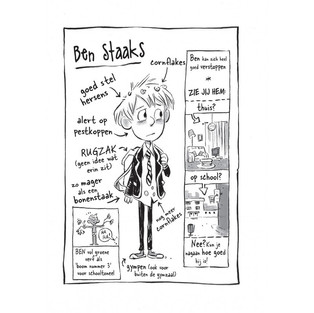 Ben Staaks
cornflakes
goed stel
hersens
alert op
pestkoppen
RUGZAK
(geen idee wat
erin zit)
zo mager
als een
bonenstaak
nog meer
cornflakes
gympen (ook voor
buiten de gymzaal)
BEN vol groene
verf als
'boom nummer 3'
voor schooltoneel!
Ben kan zich heel
goed verstoppen
ZIE JIJ HEM
thuis?
op school?
Nee? Kun je
nagaan hoe goed
hij is!